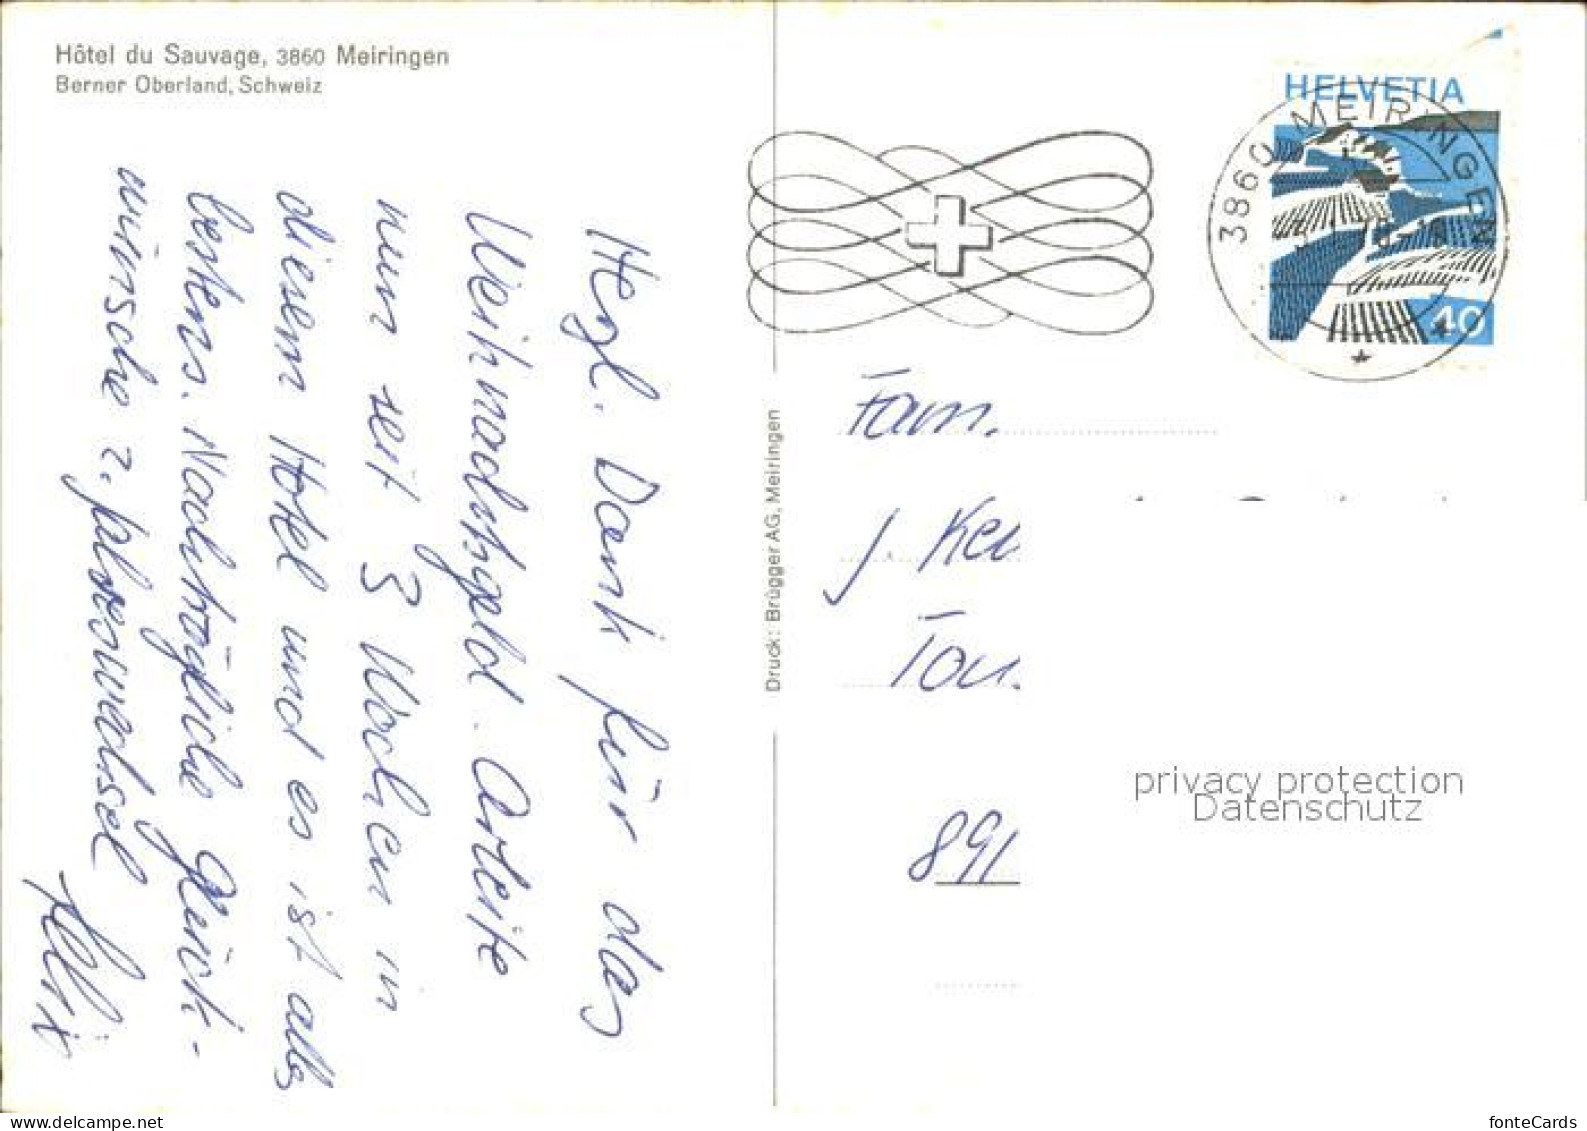 Hôtel du Sauvage, 3860 Meiringen
Berner Oberland, Schweiz
Herzl. Dank für das
Weihnachtsgeld. Arbeite
nun seit 3 Wochen in
diesem Hotel und es ist alles
bestens. Nachträgliche Glück-
wünsche z. Jahreswechsel
Felix
Druck: Brügger AG, Meiringen
HELVETIA
40
3860 MEIRINGEN
Fam.
J. Kel
891
privacy protection
Datenschutz
fonteCards